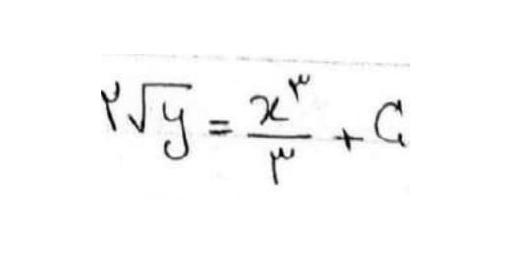 ۲√y = x^۳/۳ + C